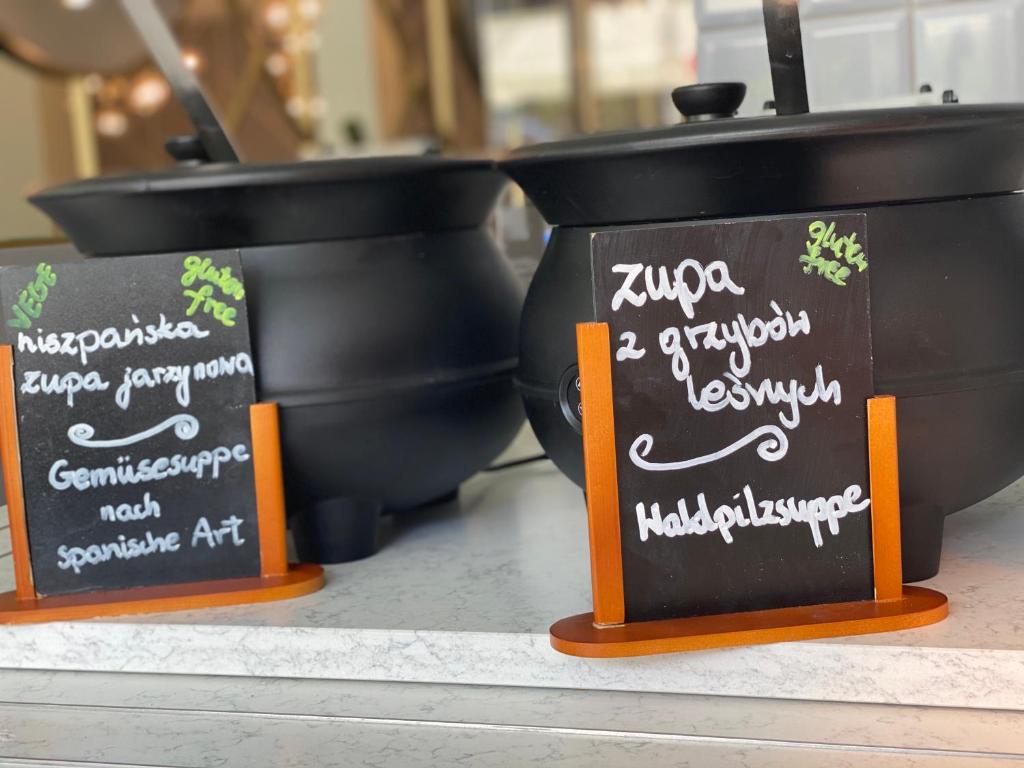 VEGE
gluten
free
hiszpańska
zupa jarzynowa
Gemüsesuppe
nach
spanische Art
gluten
free
zupa
z grzybów
leśnych
Waldpilzsuppe